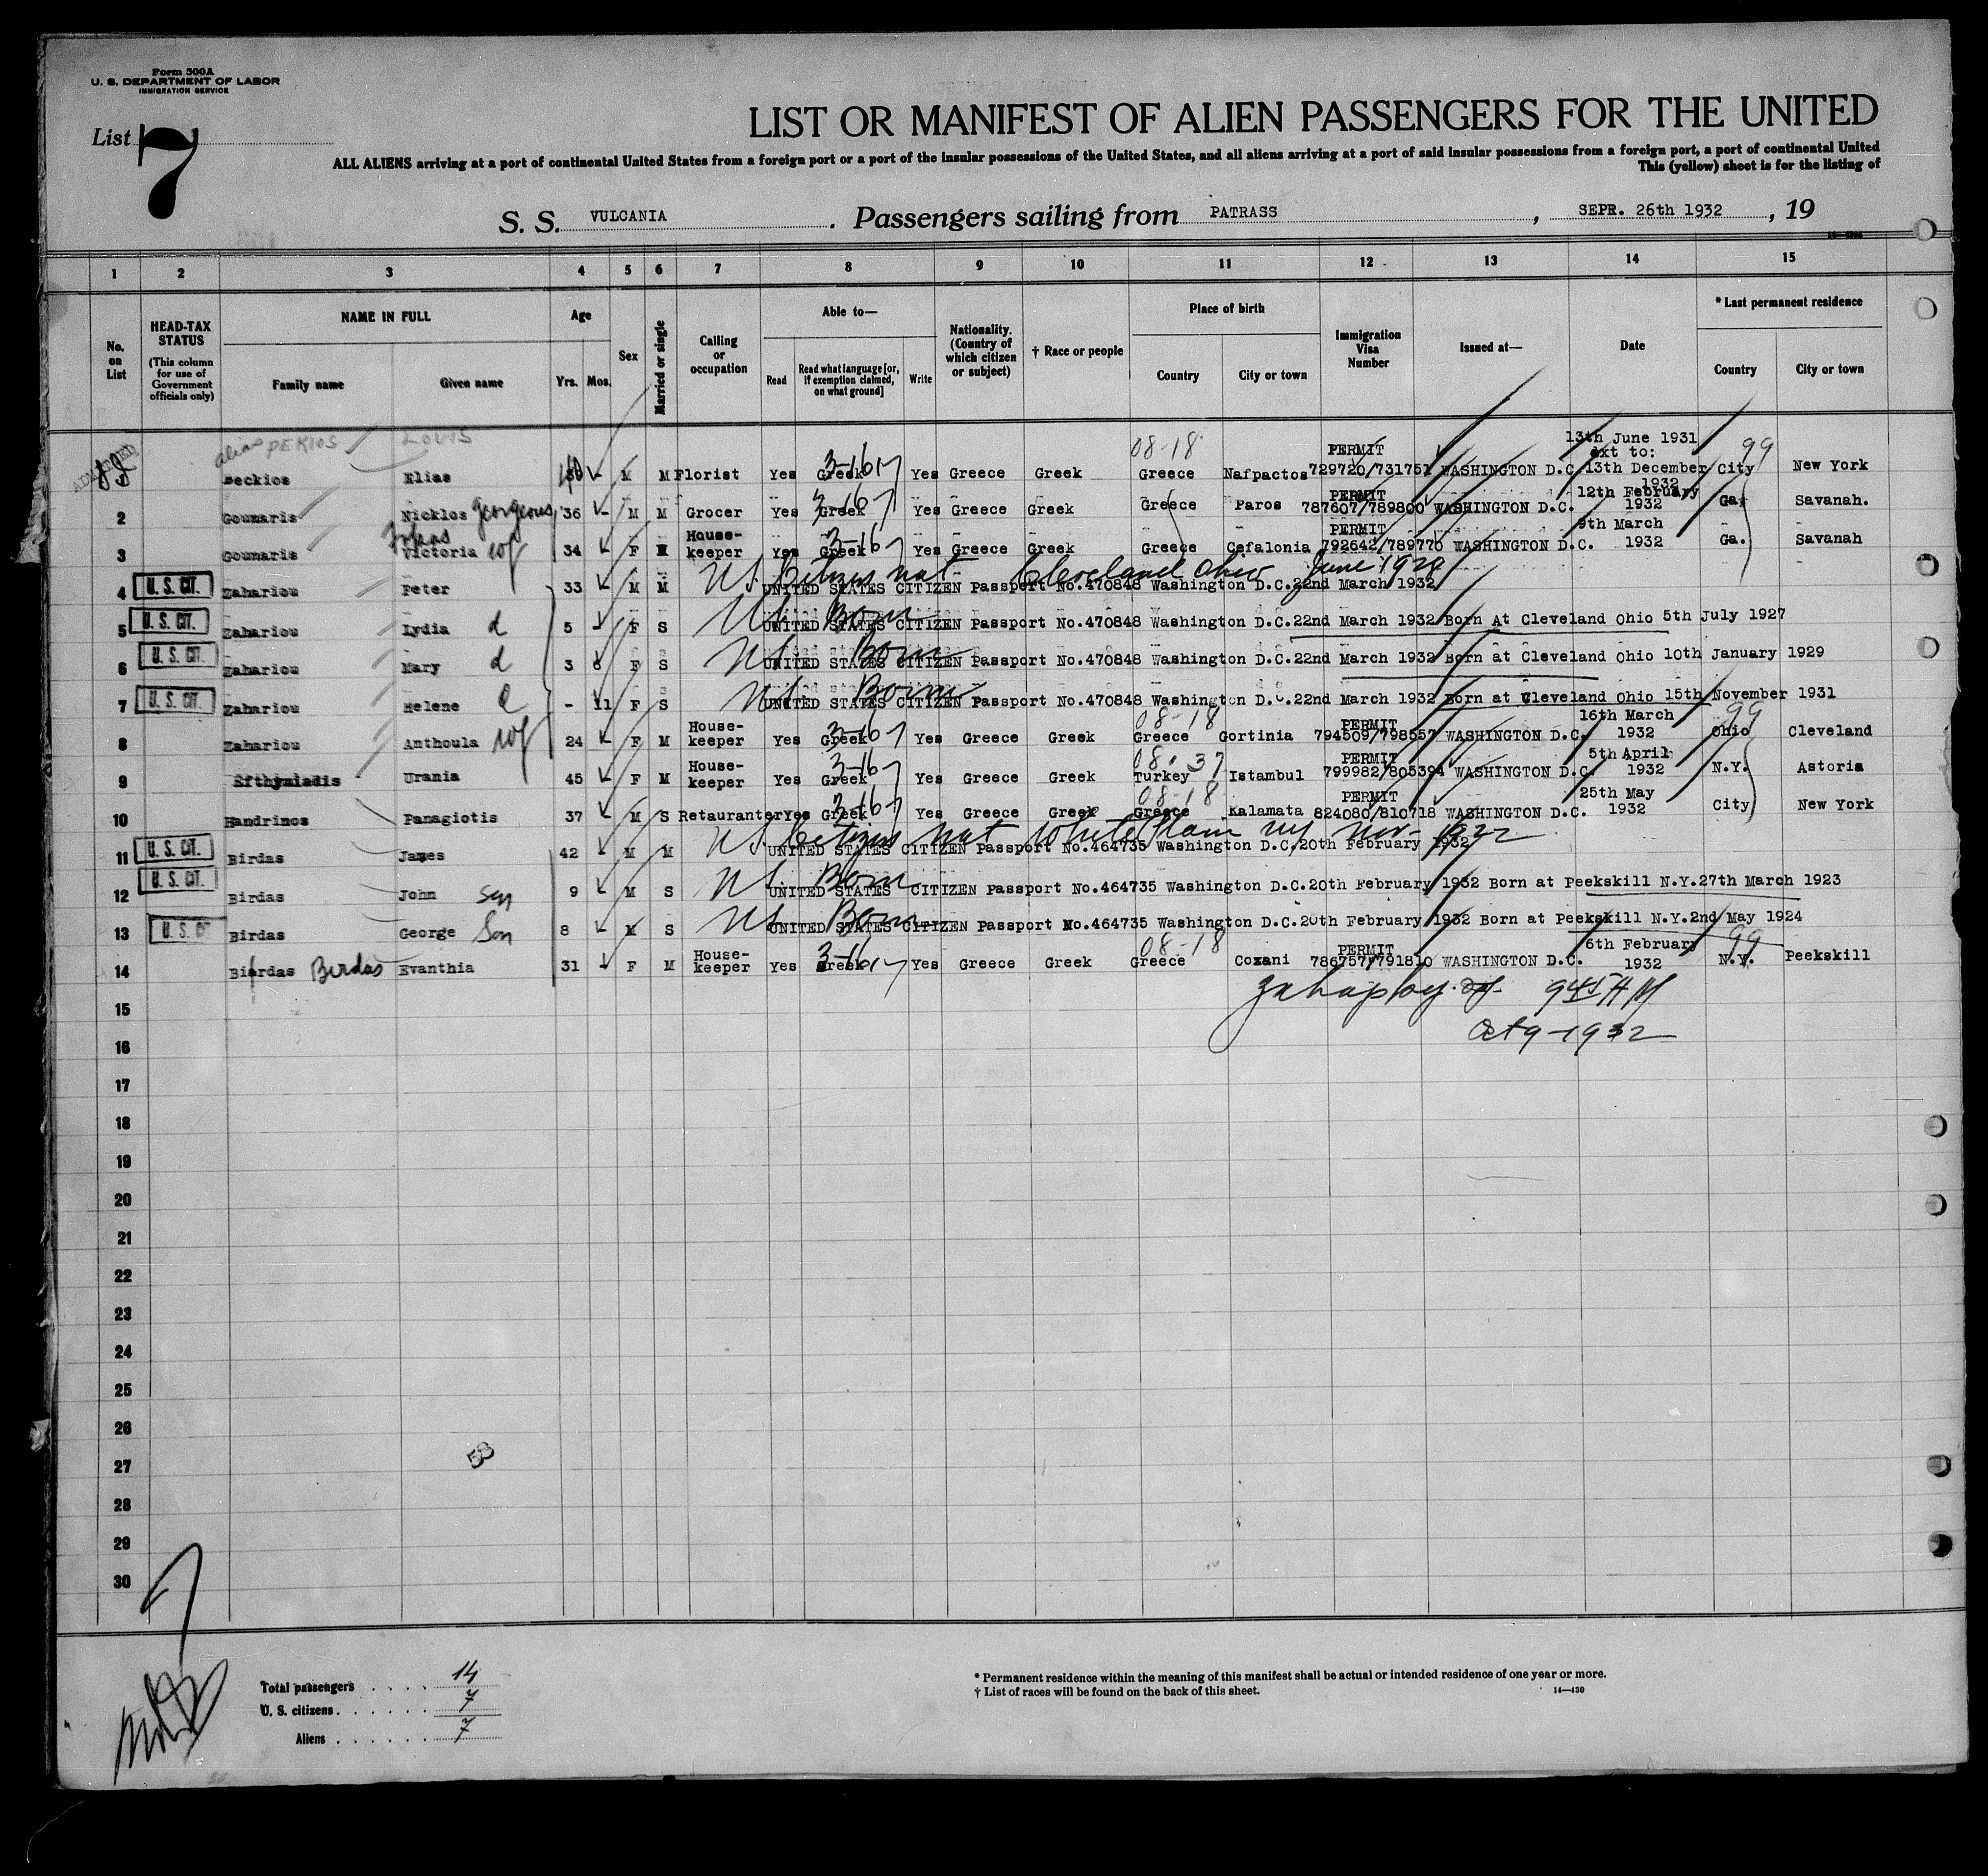 Form 500A
U. S. DEPARTMENT OF LABOR
IMMIGRATION SERVICE
List 7
LIST OR MANIFEST OF ALIEN PASSENGERS FOR THE UNITED
ALL ALIENS arriving at a port of continental United States from a foreign port or a port of the insular possessions of the United States, and all aliens arriving at a port of said insular possessions from a foreign port, a port of continental United
This (yellow) sheet is for the listing of
S. S. VULCANIA . Passengers sailing from PATRASS , SEPR. 26th 1932 , 19
1 2 3 4 5 6 7 8 9 10 11 12 13 14 15
No. on List
HEAD-TAX STATUS
(This column for use of Government officials only)
NAME IN FULL
Family name Given name
Age
Yrs. Mos.
Sex
Married or single
Calling or occupation
Able to—
Read Read what language [or, if exemption claimed, on what ground] Write
Nationality. (Country of which citizen or subject)
† Race or people
Place of birth
Country City or town
Immigration Visa Number
Issued at—
Date
* Last permanent residence
Country City or town
alias PEKIOS LOUIS 08-18 PERMIT 13th June 1931 ext to: 99
Elias M M Florist Yes Greek 3-16 Yes Greece Greek Greece Nafpactos 729720/731751 WASHINGTON D.C. 13th December 1932 City New York
2 Gounaris Nicklos Georgeous 36 - M M Grocer Yes Greek Yes Greece Greek Greece Paros PERMIT 787607/789800 WASHINGTON D.C. 12th February 1932 Ga. Savanah.
3 Gounaris Victoria wf 34 - F M House-keeper Yes Greek 3-16 Yes Greece Greek Greece Cefalonia PERMIT 792642/789770 WASHINGTON D.C. 9th March 1932 Ga. Savanah
US Citizen nat Cleveland Ohio June 1929
4 U. S. CIT. Zahariou Peter 33 - M M UNITED STATES CITIZEN Passport No.470848 Washington D.C.22nd March 1932
US Born
5 U. S. CIT. Zahariou Lydia d 5 - F S UNITED STATES CITIZEN Passport No.470848 Washington D.C.22nd March 1932 Born At Cleveland Ohio 5th July 1927
US Born
6 U. S. CIT. Zahariou Mary d 3 8 F S UNITED STATES CITIZEN Passport No.470848 Washington D.C.22nd March 1932 Born at Cleveland Ohio 10th January 1929
US Born
7 U. S. CIT. Zahariou Helene d - 11 F S UNITED STATES CITIZEN Passport No.470848 Washington D.C.22nd March 1932 Born at Cleveland Ohio 15th November 1931
08-18 99
8 Zahariou Anthoula wf 24 - F M House-keeper Yes Greek 3-16 Yes Greece Greek Greece Gortinia PERMIT 794509/798557 WASHINGTON D.C. 16th March 1932 Ohio Cleveland
08-37
9 Efthymiadis Urania 45 - F M House-keeper Yes Greek 3-16 Yes Greece Greek Turkey Istambul PERMIT 799982/805394 WASHINGTON D.C. 5th April 1932 N.Y. Astoria
08-18
10 Handrinos Panagiotis 37 - M S Retauranter Yes Greek 3-16 Yes Greece Greek Greece Kalamata PERMIT 824080/810718 WASHINGTON D.C. 25th May 1932 City New York
US Citizen nat White Plain NY Nov- 1922
11 U. S. CIT. Birdas James 42 - M M UNITED STATES CITIZEN Passport No.464735 Washington D.C.20th February 1932
US Born
12 U. S. CIT. Birdas John son 9 - M S UNITED STATES CITIZEN Passport No.464735 Washington D.C.20th February 1932 Born at Peekskill N.Y.27th March 1923
US Born
13 U. S. CIT Birdas George Son 8 - M S UNITED STATES CITIZEN Passport No.464735 Washington D.C.20th February 1932 Born at Peekskill N.Y.2nd May 1924
08-18 99
14 Birdas Evanthia 31 - F M House-keeper Yes Greek 3-16 Yes Greece Greek Greece Cozani PERMIT 786757/791810 WASHINGTON D.C. 6th February 1932 N.Y. Peekskill
15 945 AM
16 Oct 9-1932
17
18
19
20
21
22
23
24
25
26
27 53
28
29
30
7
Total passengers . . . . . 14
U. S. citizens . . . . . . 7
Aliens . . . . . . 7
* Permanent residence within the meaning of this manifest shall be actual or intended residence of one year or more.
† List of races will be found on the back of this sheet. 14—430